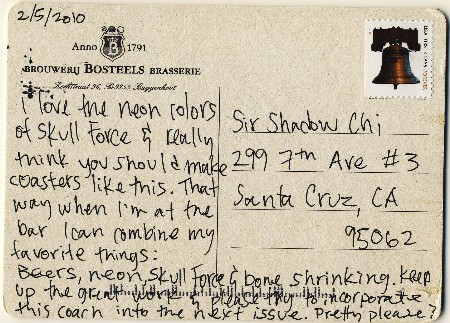 2/5/2010
Anno 1791
BROUWERIJ BOSTEELS BRASSERIE
Kerkstraat 96, B-9255 Buggenhout
i love the neon colors
of Skull Force & really
think you should make
coasters like this. That
way when I'm at the
bar I can combine my
favorite things:
Beers, neon, Skull Force & bone shrinking. Keep
up the great work & please try to incorporate
this coach into the next issue. Pretty please?
Sir Shadow Chi
299 7th Ave #3
Santa Cruz, CA
95062